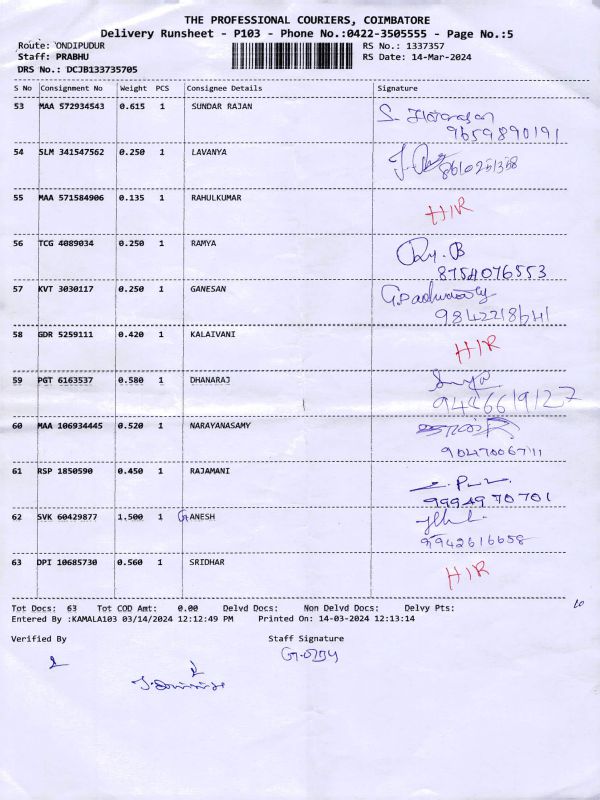 THE PROFESSIONAL COURIERS, COIMBATORE
Delivery Runsheet - P103 - Phone No.:0422-3505555 - Page No.:5
Route: ONDIPUDUR RS No.: 1337357
Staff: PRABHU RS Date: 14-Mar-2024
DRS No.: DCJB133735705
S No Consignment No Weight PCS Consignee Details Signature
53 MAA 572934543 0.615 1 SUNDAR RAJAN
9659890191
54 SLM 341547562 0.250 1 LAVANYA
55 MAA 571584906 0.135 1 RAHULKUMAR HIR
56 TCG 4089034 0.250 1 RAMYA
8754076553
57 KVT 3030117 0.250 1 GANESAN
58 GDR 5259111 0.420 1 KALAIVANI HIR
59 PGT 6163537 0.580 1 DHANARAJ
60 MAA 106934445 0.520 1 NARAYANASAMY
61 RSP 1850590 0.450 1 RAJAMANI
9994970701
62 SVK 60429877 1.500 1 GANESH
63 DPI 10685730 0.560 1 SRIDHAR HIR
Tot Docs: 63 Tot COD Amt: 0.00 Delvd Docs: Non Delvd Docs: Delvy Pts:
Entered By :KAMALA103 03/14/2024 12:12:49 PM Printed On: 14-03-2024 12:13:14
Verified By Staff Signature